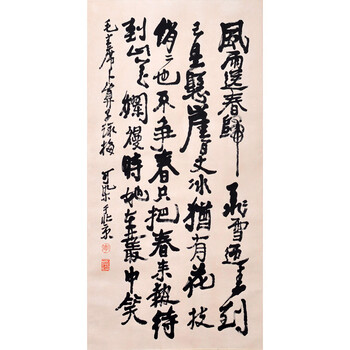 風雨送春歸飛雪迎春到
已是懸崖百丈冰猶有花枝
俏〻也不爭春只把春來報待
到山花爛漫時她在叢中笑
毛主席卜算子詠梅